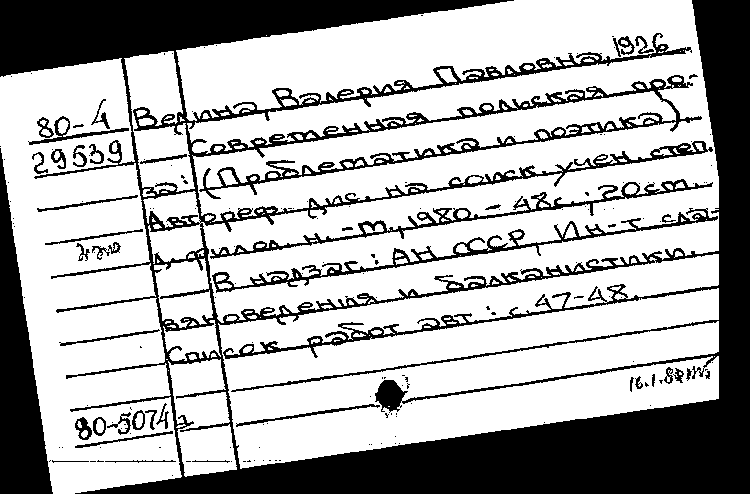 80-4
29539
Ведина, Валерия Павловна, 1926
Современная польская про-
за: (Проблематика и поэтика).
Автореф. дис. на соиск. учен. степ.
д. филол. н. - М., 1980. - 48с.; 20см.
В надзаг.: АН СССР, Ин-т сла-
вяноведения и балканистики.
Список работ авт.: с. 47-48.
80-5074а